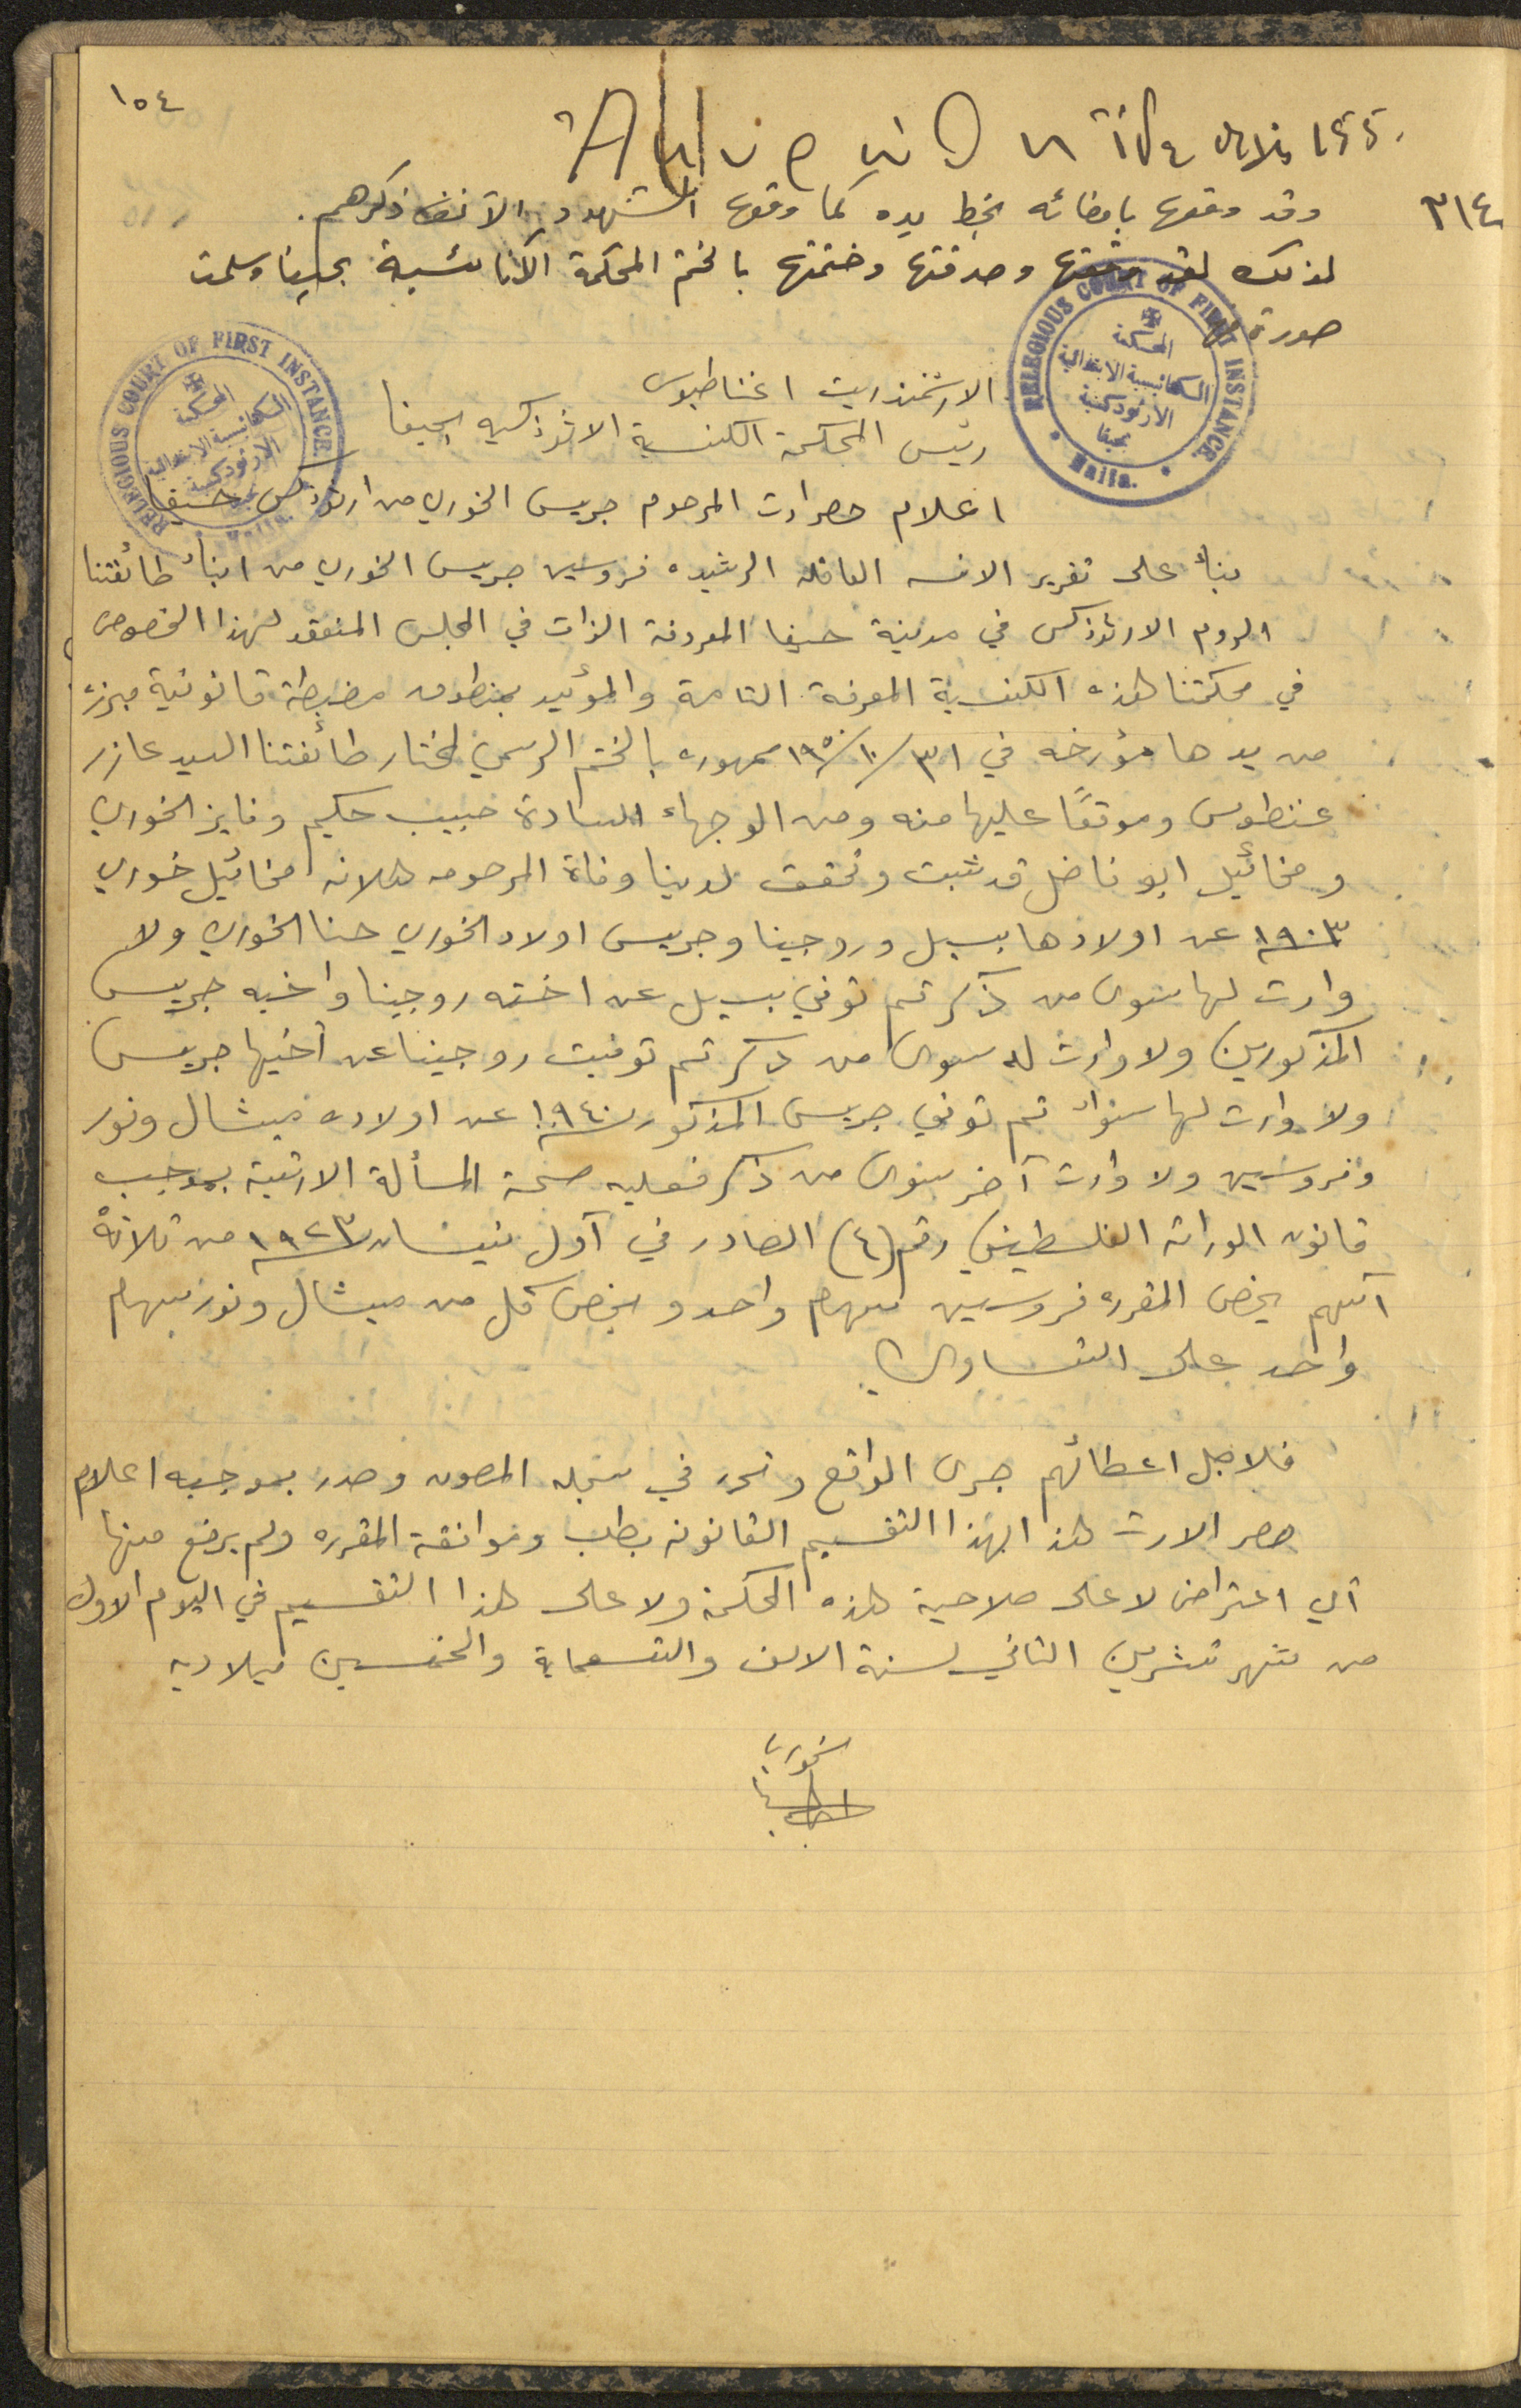 ١٥٤
٣١٤
وقد وقعها بامضائه بخط يده كما وقعها الشهود الآنف ذكرهم.
لذلك لقد وثقتها وصدقتها وختمتها بالختم المحكمة الكنائسية بحيفا وسلمت
صورة
RELEGIOUS COURT OF FIRST INSTANCE
المحكمة
الكنائسية الابتدائية
الارثوذكسية
بحيفا
Haifa.
RELEGIOUS COURT OF FIRST INSTANCE.
المحكمة
الكنائسية الابتدائية
الارثوذكسية
الارشمندريت اغناطيوس
رئيس المحكمة الكنسية الارثوذكسيه بحيفا
اعلام حصر ارث المرحوم جريس الخوري من ارثوذكس حيفا
بناءً على تقرير الانسه العاقله الرشيده فروسين جريس الخوري من ابناء طائفتنا
الروم الارثوذكس في مدينة حيفا المعروفة الذات في المجلس المنعقد لهذا الخصوص
في محكمتنا هذه الكنسية المعرفة التامة والمؤيد بمنطوق مضبطة قانونية مبرزه
من يدها مؤرخه في ٣١/١٠/١٩٥٠ ممهوره بالختم الرسمي لمختار طائفتنا السيد عازر
عنطوس وموقعًا عليها منه ومن الوجهاء السادة حبيب حكيم وفايز الخوري
ومخائيل ابو فاضل قد ثبت وتحقق لدينا وفاة المرحومه هلانه مخائيل خوري
١٩٠٣ عن اولادها بسيل وروجينا وجريس اولاد الخوري حنا الخوري ولا
وارث لها سوى من ذكر ثم توفي بسيل عن اخته روجينا واخيه جريس
المذكورين ولا وارث له سوى من ذكر ثم توفيت روجينا عن أخيها جريس
ولا وارث لها سواه ثم توفي جريس المذكور ١٩٤٠ عن اولاده ميشال ونور
وفروسين ولا وارث آخر سوى من ذكر فعليه صحة المسألة الارثية بموجب
قانون الوراثة الفلسطيني رقم (٤) الصادر في أول نيسان ١٩٢٣ من ثلاثة
أسهم يخص المقرره فروسين سهم واحد ويخص كل من ميشال ونور سهم
واحد على التساوي
فلاجل اعطائهم جرى الواقع وتحرر في سجله المصون وصدر بموجبه اعلام
حصر الارث هذا بهذا التقسيم القانوني بطلب وموافقة المقرره ولم يرفع منها
أي اعتراض لا على صلاحية هذه المحكمة ولا على هذا التقسيم في اليوم الاول
من شهر تشرين الثاني لسنة الالف والتسعماية والخمسين ميلاديه